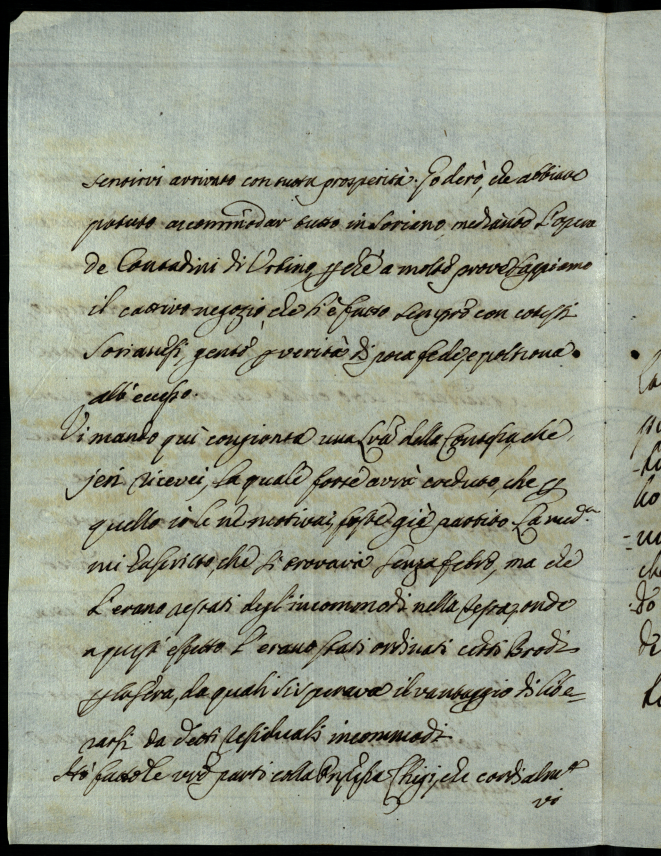 sentirvi arrivato con tutta prosperità. Goderò, che abbiate
potuto accommodar tutto in Soriano mediante l'opera
de Contadini di Urbino, p che a molte prove sappiamo
il cattivo negozio che s'è fatto sempre con cotesti
Sorianesi, gente p verità di poca fede, e poltrona
all' eccesso.
Vi mando quì congionta una Lrã della Contessa, che
jeri ricevei, la quale forse avrà creduto, che p
quello io le ne motivai foste già partito. La med.ma
mi ha scritto, che si trovava senza febre, ma che
l'erano restati degl'incommodi nella testa, onde
a quest' effetto l'erano stati ordinati certi Brodi
p la sera, da quali si sperava il vantaggio di libe=
rarsi da detti residuali incommodi.
Hò fatto le vrẽ parti colla Prñpessa Chigi, che cordialmte
vi